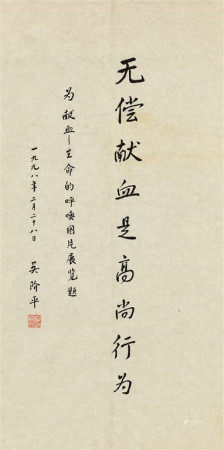 无偿献血是高尚行为
为献血—生命的呼唤图片展览题
一九九八年二月二十八日
吴阶平